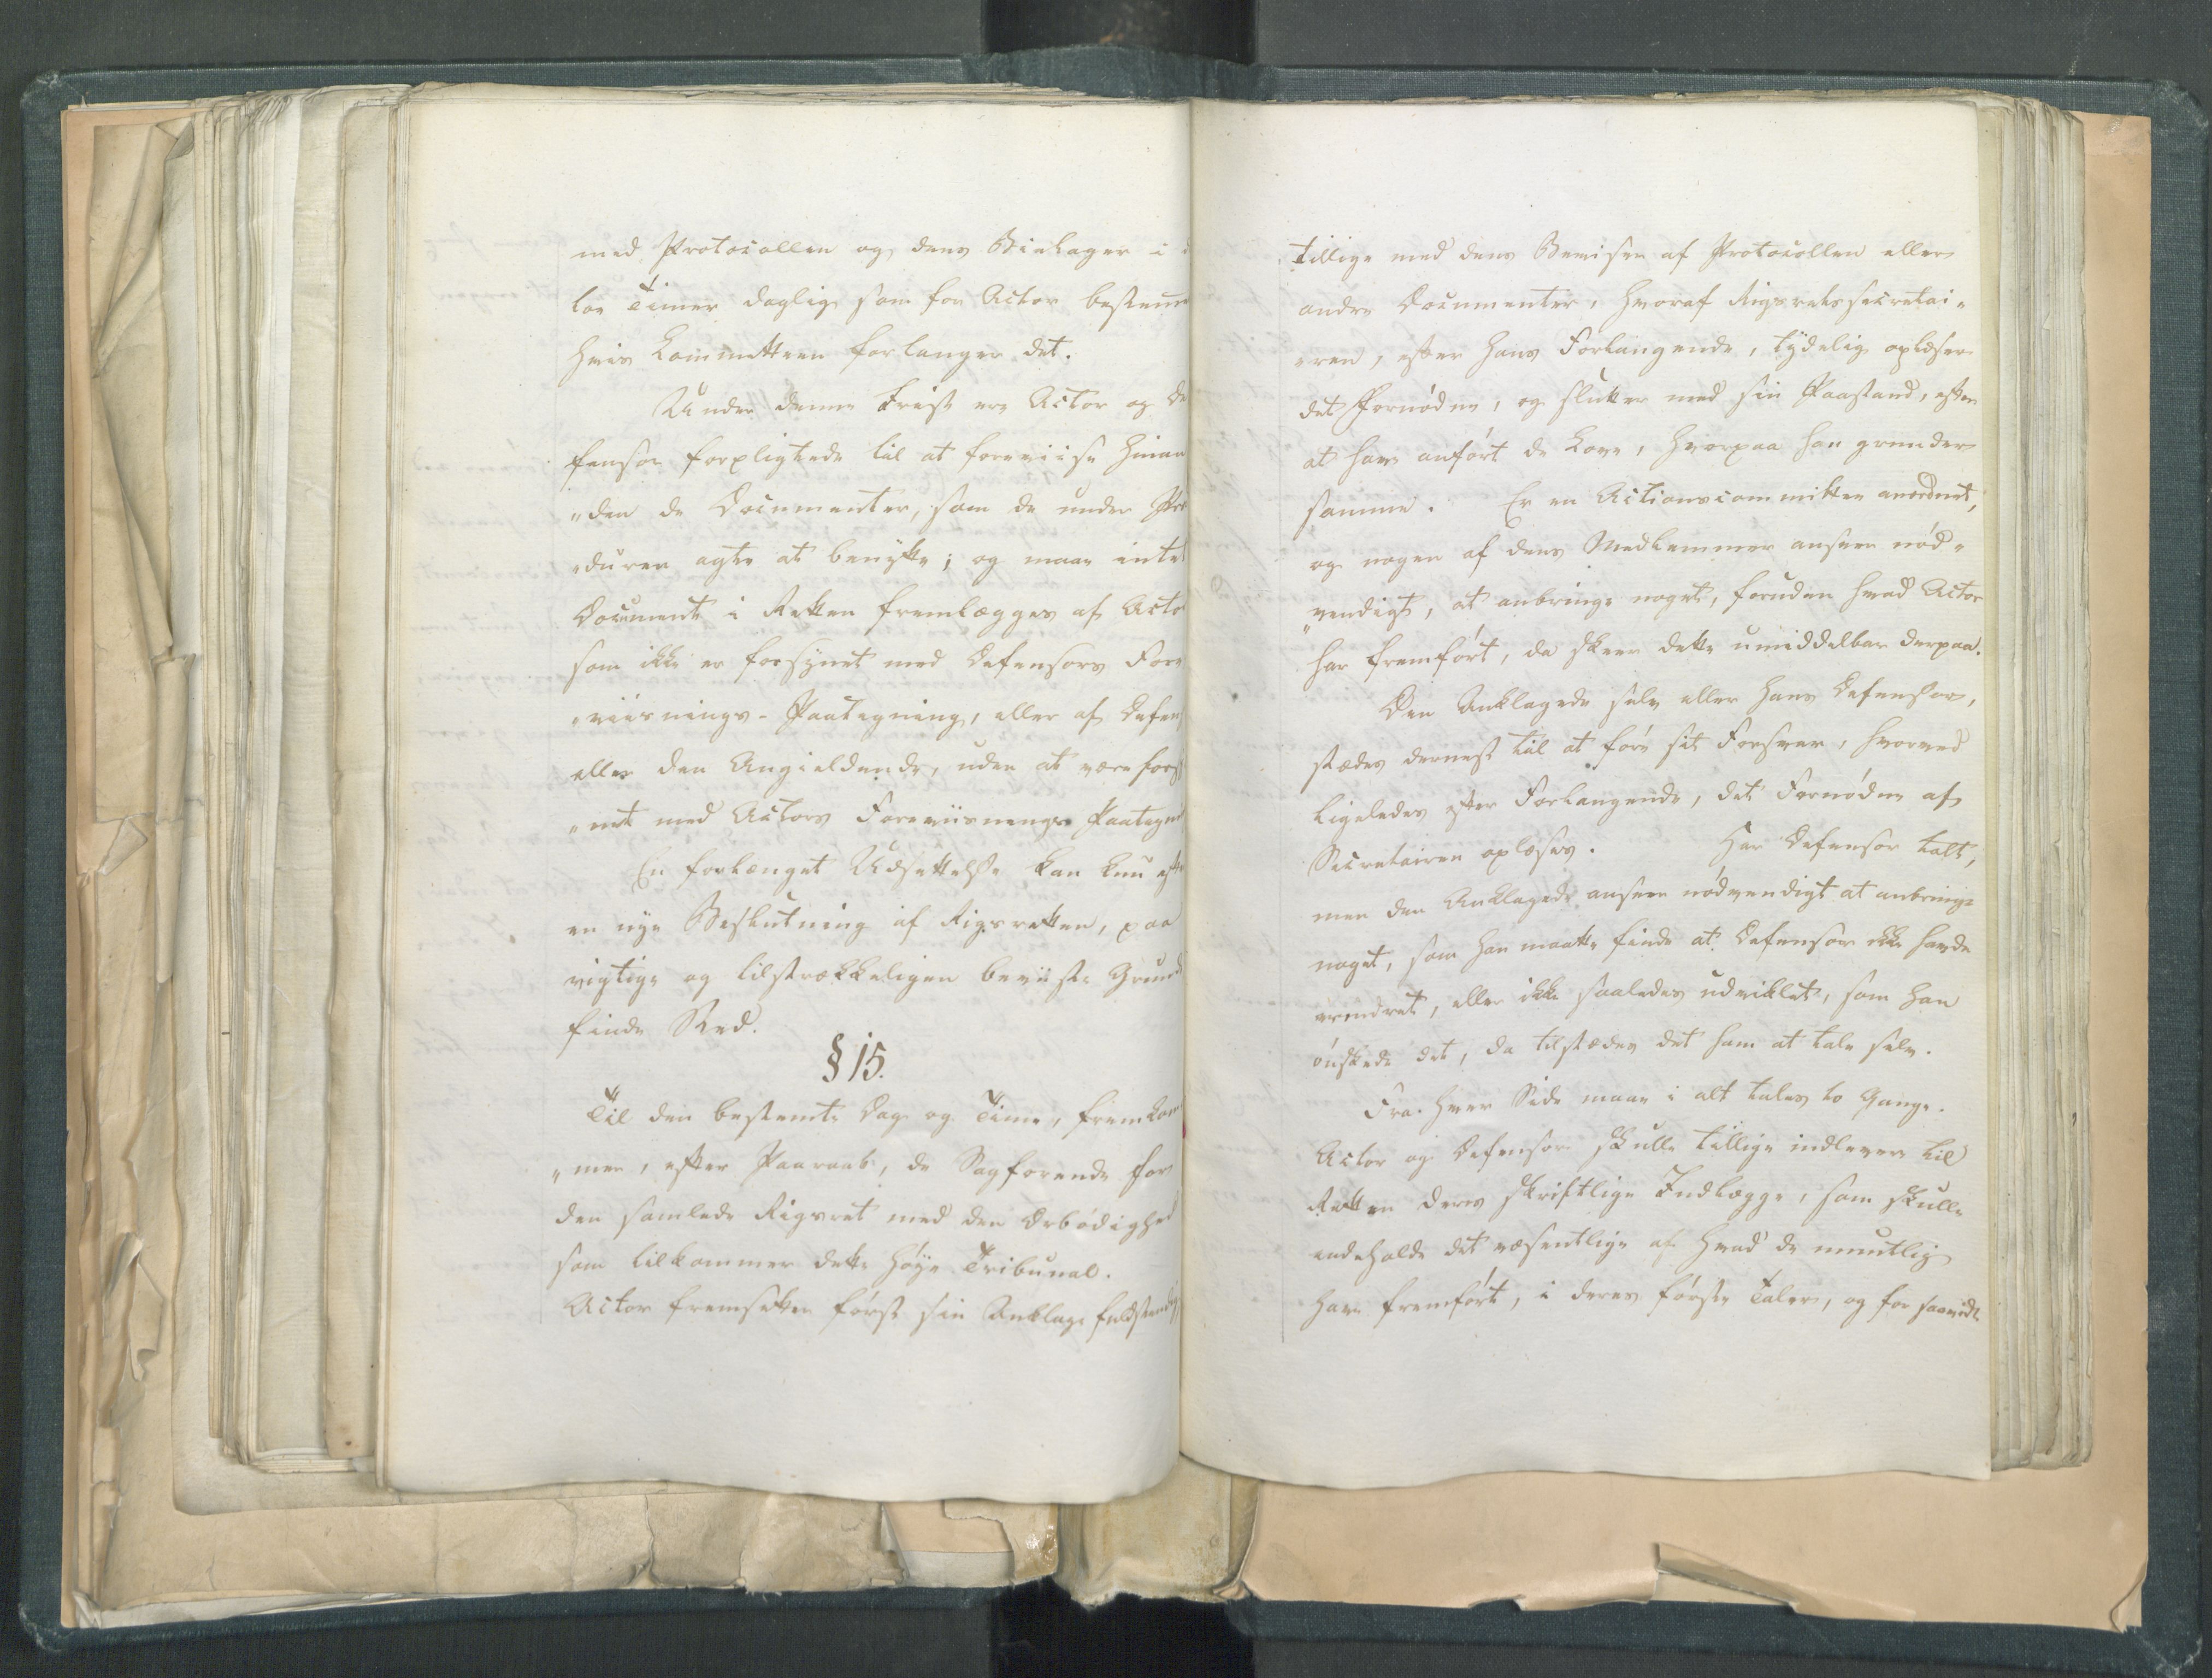 med Protocollen og dens Bielager i
toe Timer daglig som for Actor bestem
hvis Committeen forlanger det.
Under denne Frist ere Actor og De
fensor forpligtede til at foreviise hinan
„den de Documenter, som de under Pro
„duren agte at benytte; og maae intet
Document i Retten fremlægges af Acto
som ikke er forsynet med Defensors Fore
„viisnings-Paategning, eller af Defen
eller den Angieldende, uden at være fors
„net med Actors Foreviisnings Paategn
En forlænget Udsættelse kan kun eft
en nye Beslutning af Rigsretten, paa
vigtige og tilstrækkeligen beviiste Grund
finde Sted.
§ 15.
Til den bestemte Dag og Time, fremkom
„mer, efter Paaraab, de Sagførende for
den samlede Rigsret med den Ærbødighed
som tilkommer dette høye Tribunal.
Actor fremsætter først sin Anklage fuldstændig,
tillige med dens Beviser af Protocollen eller
andre Documenter, hvoraf Rigsretssecretai„
„ren, efter hans Forlangende, tydelig oplæser
det Fornødne, og slutter med sin Paastand, efter
at have anført de Love, hvorpaa han grunder
samme. Er en Actionscommittee anordnet,
og nogen af dens Medlemmer anseer nød„
„vendigt, at anbringe noget, foruden hvad Actor
har fremført, da skeer dette umiddelbar derpaa.
Den Anklagede selv eller hans Defensor,
stædes dernest til at føre sit Forsvar, hvorved
ligeledes efter Forlangende, det Fornødne af
Secretairen oplæses. Har Defensor talt,
men den Anklagede anseer nødvendigt at anbringe
noget, som han maatte finde at Defensor ikke havde
erindret, eller ikke saaledes udviklet, som han
ønskede det, da tilstædes det ham at tale selv.
Fra hver Side maae i alt tales to Gange.
Actor og Defensor skulle tillige indlevere til
Retten deres skriftlige Indlægge, som skulle
indeholde det væsentlige af hvad de mundtlig
have fremført, i deres første Taler, og for saavidt